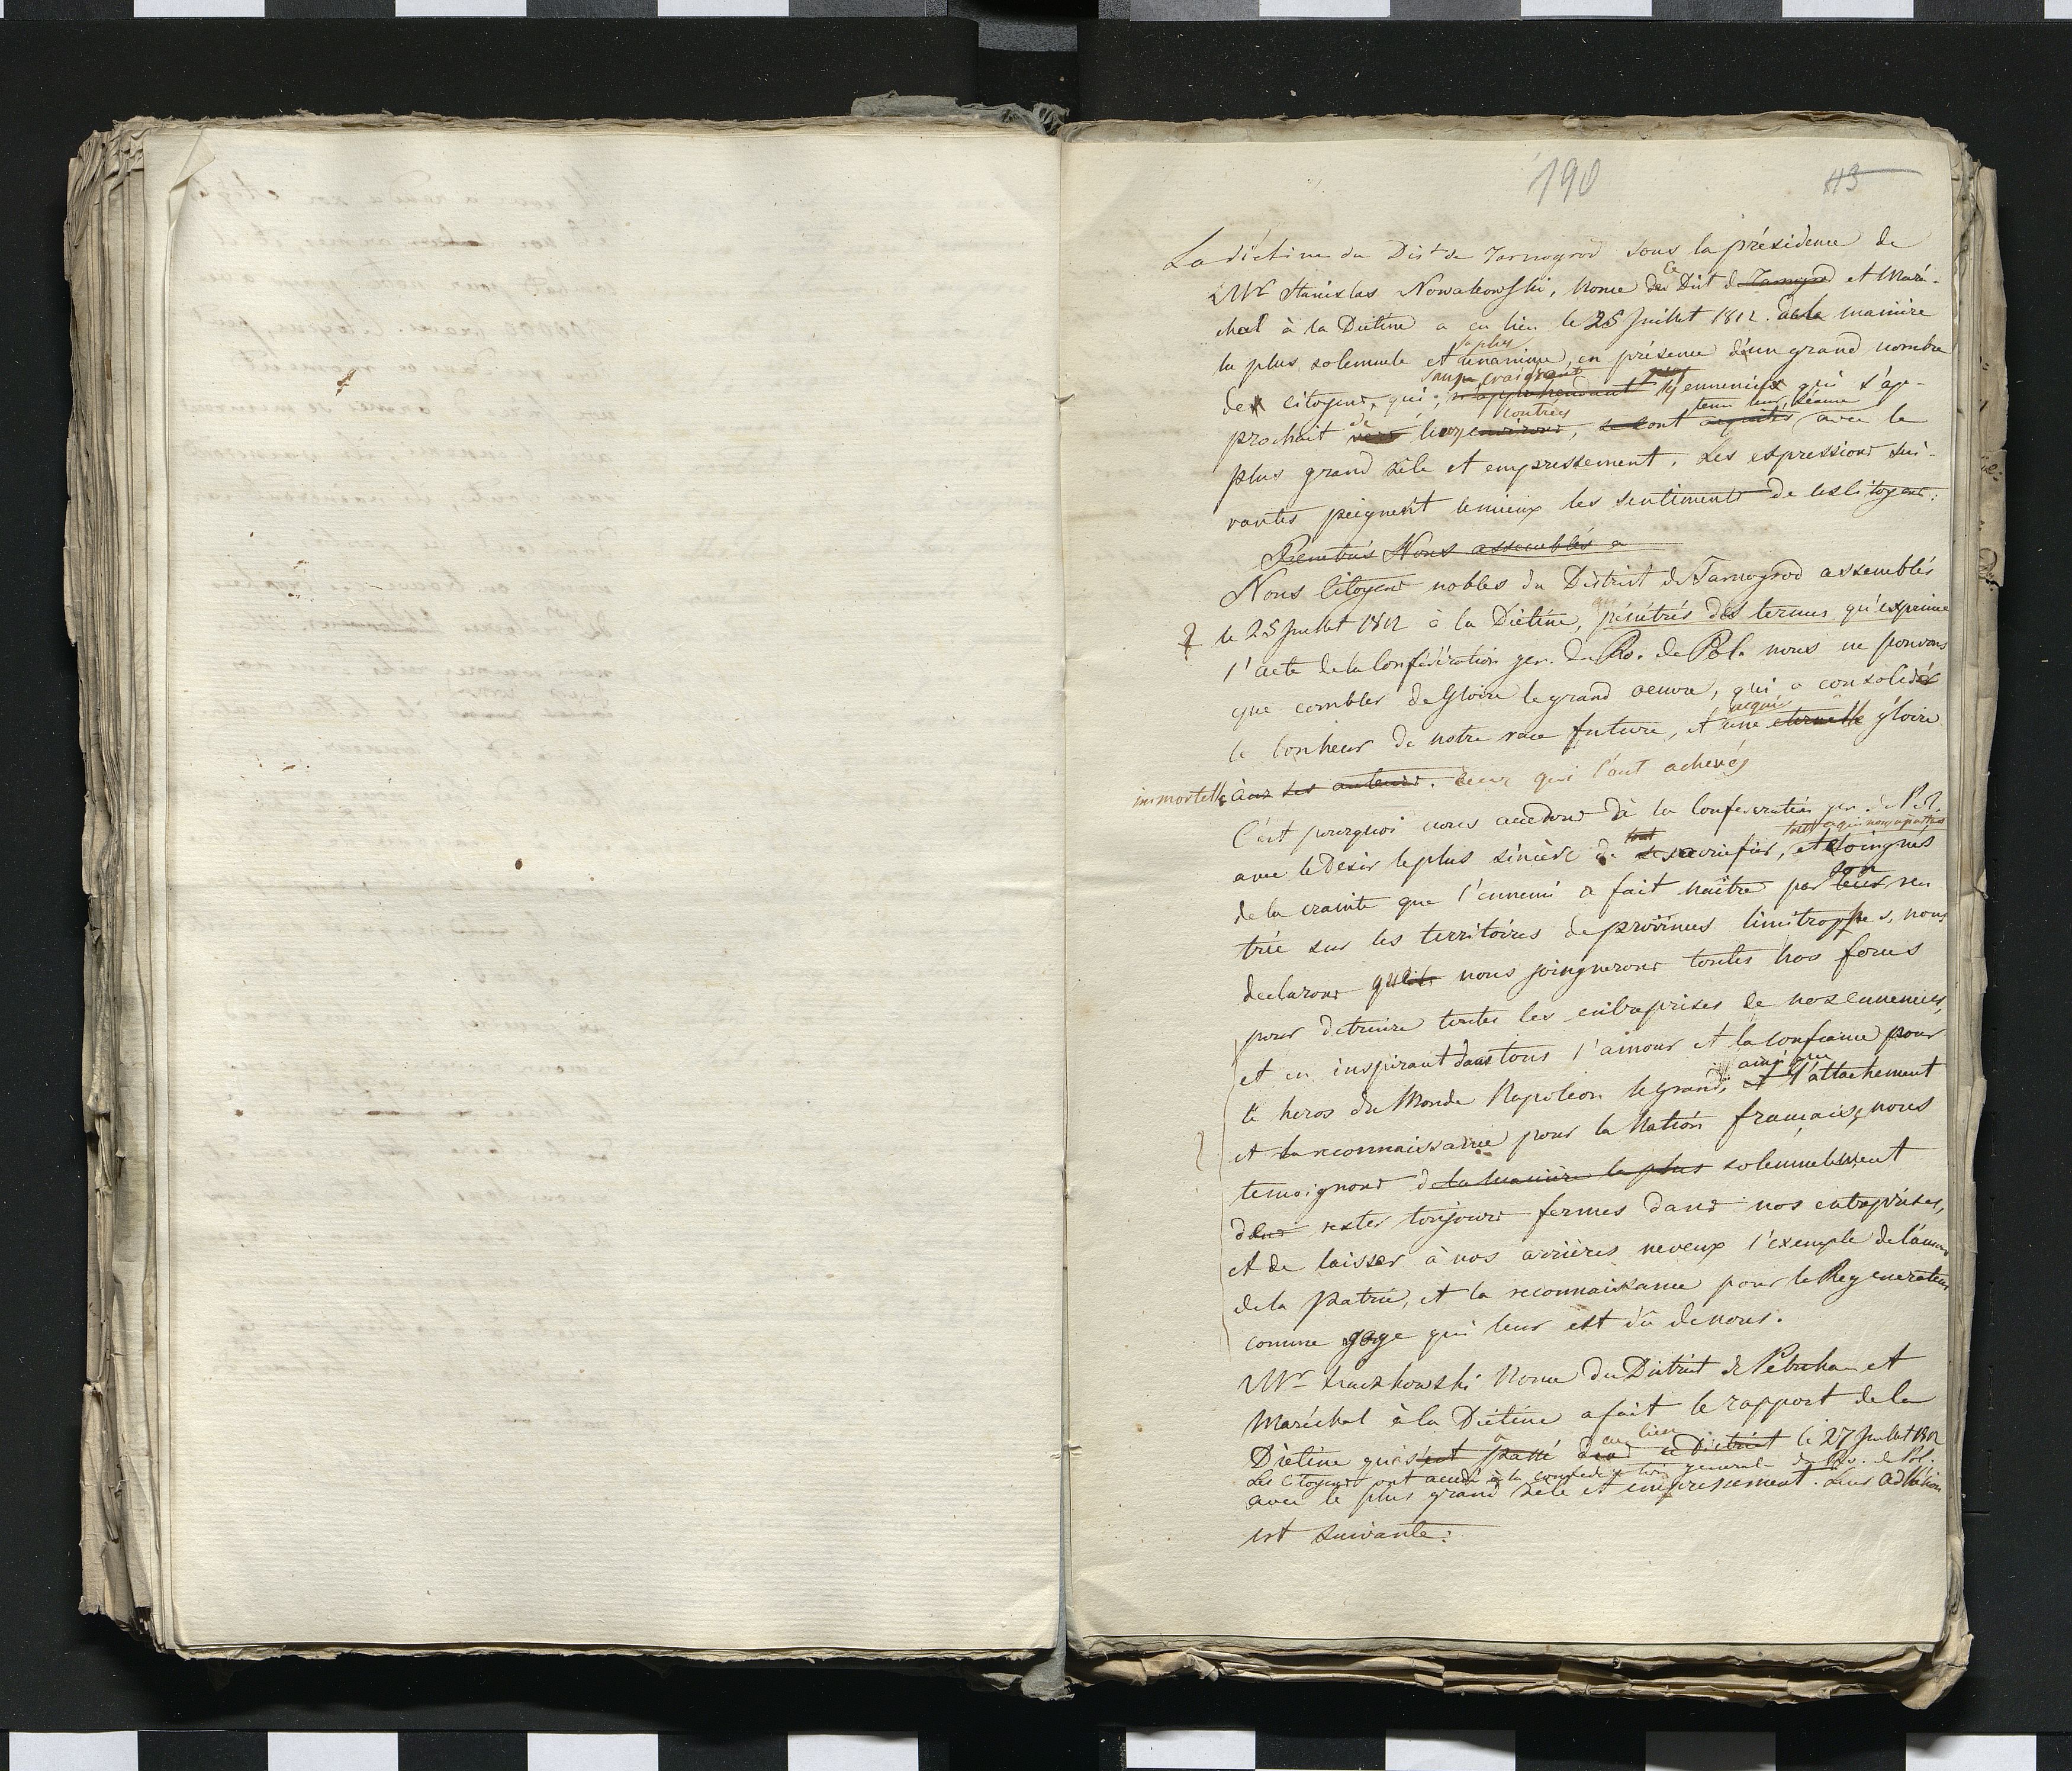 190
113
La diétine du Dist de Tarnogrod sous la présidence de
ce
Mr Stanislas Nowakowski, Nonce du Dist de Tarnogrod et Maré-
chal à la Diétine a eu lieu le 25 Juillet 1812. de la manière
la plus
la plus solemnele et unanime, en présence d'un grand nombre
sans craignant
des citoyens, qui, n'apprehendant les ennemies qui s'ap-
contrées tenu leur séance
prochait de vers leurs environs, se sont aquités avec le
plus grand zèle et empressement. Les expressions sui-
vantes peignent le mieux les sentiments de ces Citoyens:
Penetrés Nous assemblés a
Nous Citoyens nobles du District de Tarnogrod assemblés
? le 25 Juillet 1812 à la Diétine, pénétrés des termes qu'exprime
l'acte de la Confédération gen. du Ro. de Pol. nous ne pouvons
que combler de Gloire le grand oeuvre, qui a consolidé
acquis
le bonheur de notre race future, et une eternelle gloire
immortelle aux ses auteurs. Ceux qui l'ont achevés
C'est pourquoi nous accedons à la Confederation gen. de Pol.
tout tout ce qui nous apartient
avec le desir le plus sincère de se sacrifier, et eloingnés
son
de la crainte que l'ennemi a fait naître par leur ren
trée sur les territoires de provinces limitrophes, nous
declarons que nous joingnerons toutes nos forces
pour detruire toutes les entreprises de nos ennemies,
et en inspirant dans tous l'amour et la confiance pour
ainsi que
le heros du Monde Napoléon le grand, et l'attachement
et la reconnaissance pour la Nation française, nous
temoignons de la manière la plus solemnelement
de rester toujours fermes dans nos entreprises,
et de laisser à nos arrières neveux l'exemple de l'amour
de la Patrie, et la reconnaissance pour le Regenerateur
comme gage qui leur est dû de nous.
Mr Nonce du District de et
Maréchal à la Diétine a fait le rapport de la
a eu lieu
Diètine qui s'est passé dans ce District le 27 Juillet 1812
Les Citoyens ont accedé à la confederation generale du Ro. de Pol.
avec le plus grand zèle et empressement. Leur adhésion
est suivante: